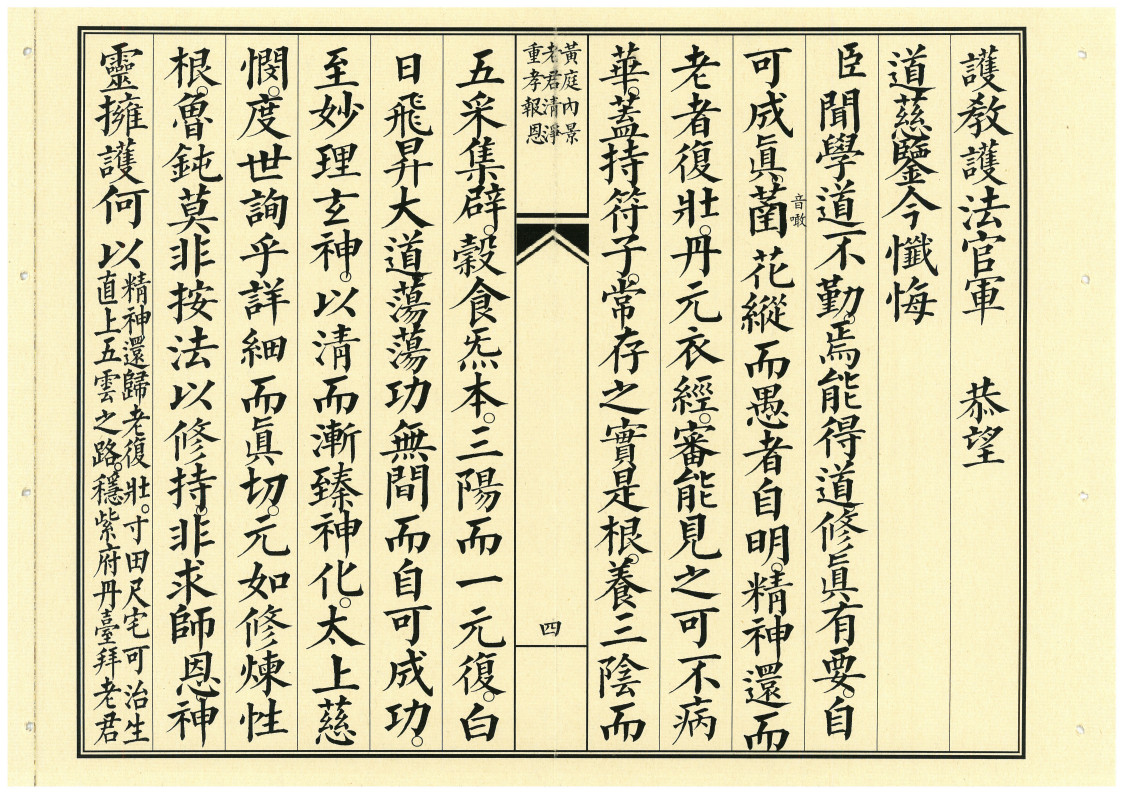 護教護法官軍　恭望
道慈鑒今懺悔
臣聞學道不勤。焉能得道修眞有要。自
可成眞。花縱而愚者自明。精神還而
音噉
老者復壯。丹元衣經。審能見之可不病
華。蓋持符子。常存之實是根。養三陰而
黃庭內景
老君清淨
重孝報恩
四
五采集辟。穀食炁本。三陽而一元復。白
日飛昇大道。蕩蕩功無間而自可成功。
至妙理玄神。以清而漸臻神化。太上慈
憫。度世詢乎詳細而眞切。元如修煉性
根。魯鈍莫非按法以修持。非求師恩。神
靈擁護何以
精神還歸老復壯。寸田尺宅可治生
直上五雲之路。穩紫府丹臺拜老君